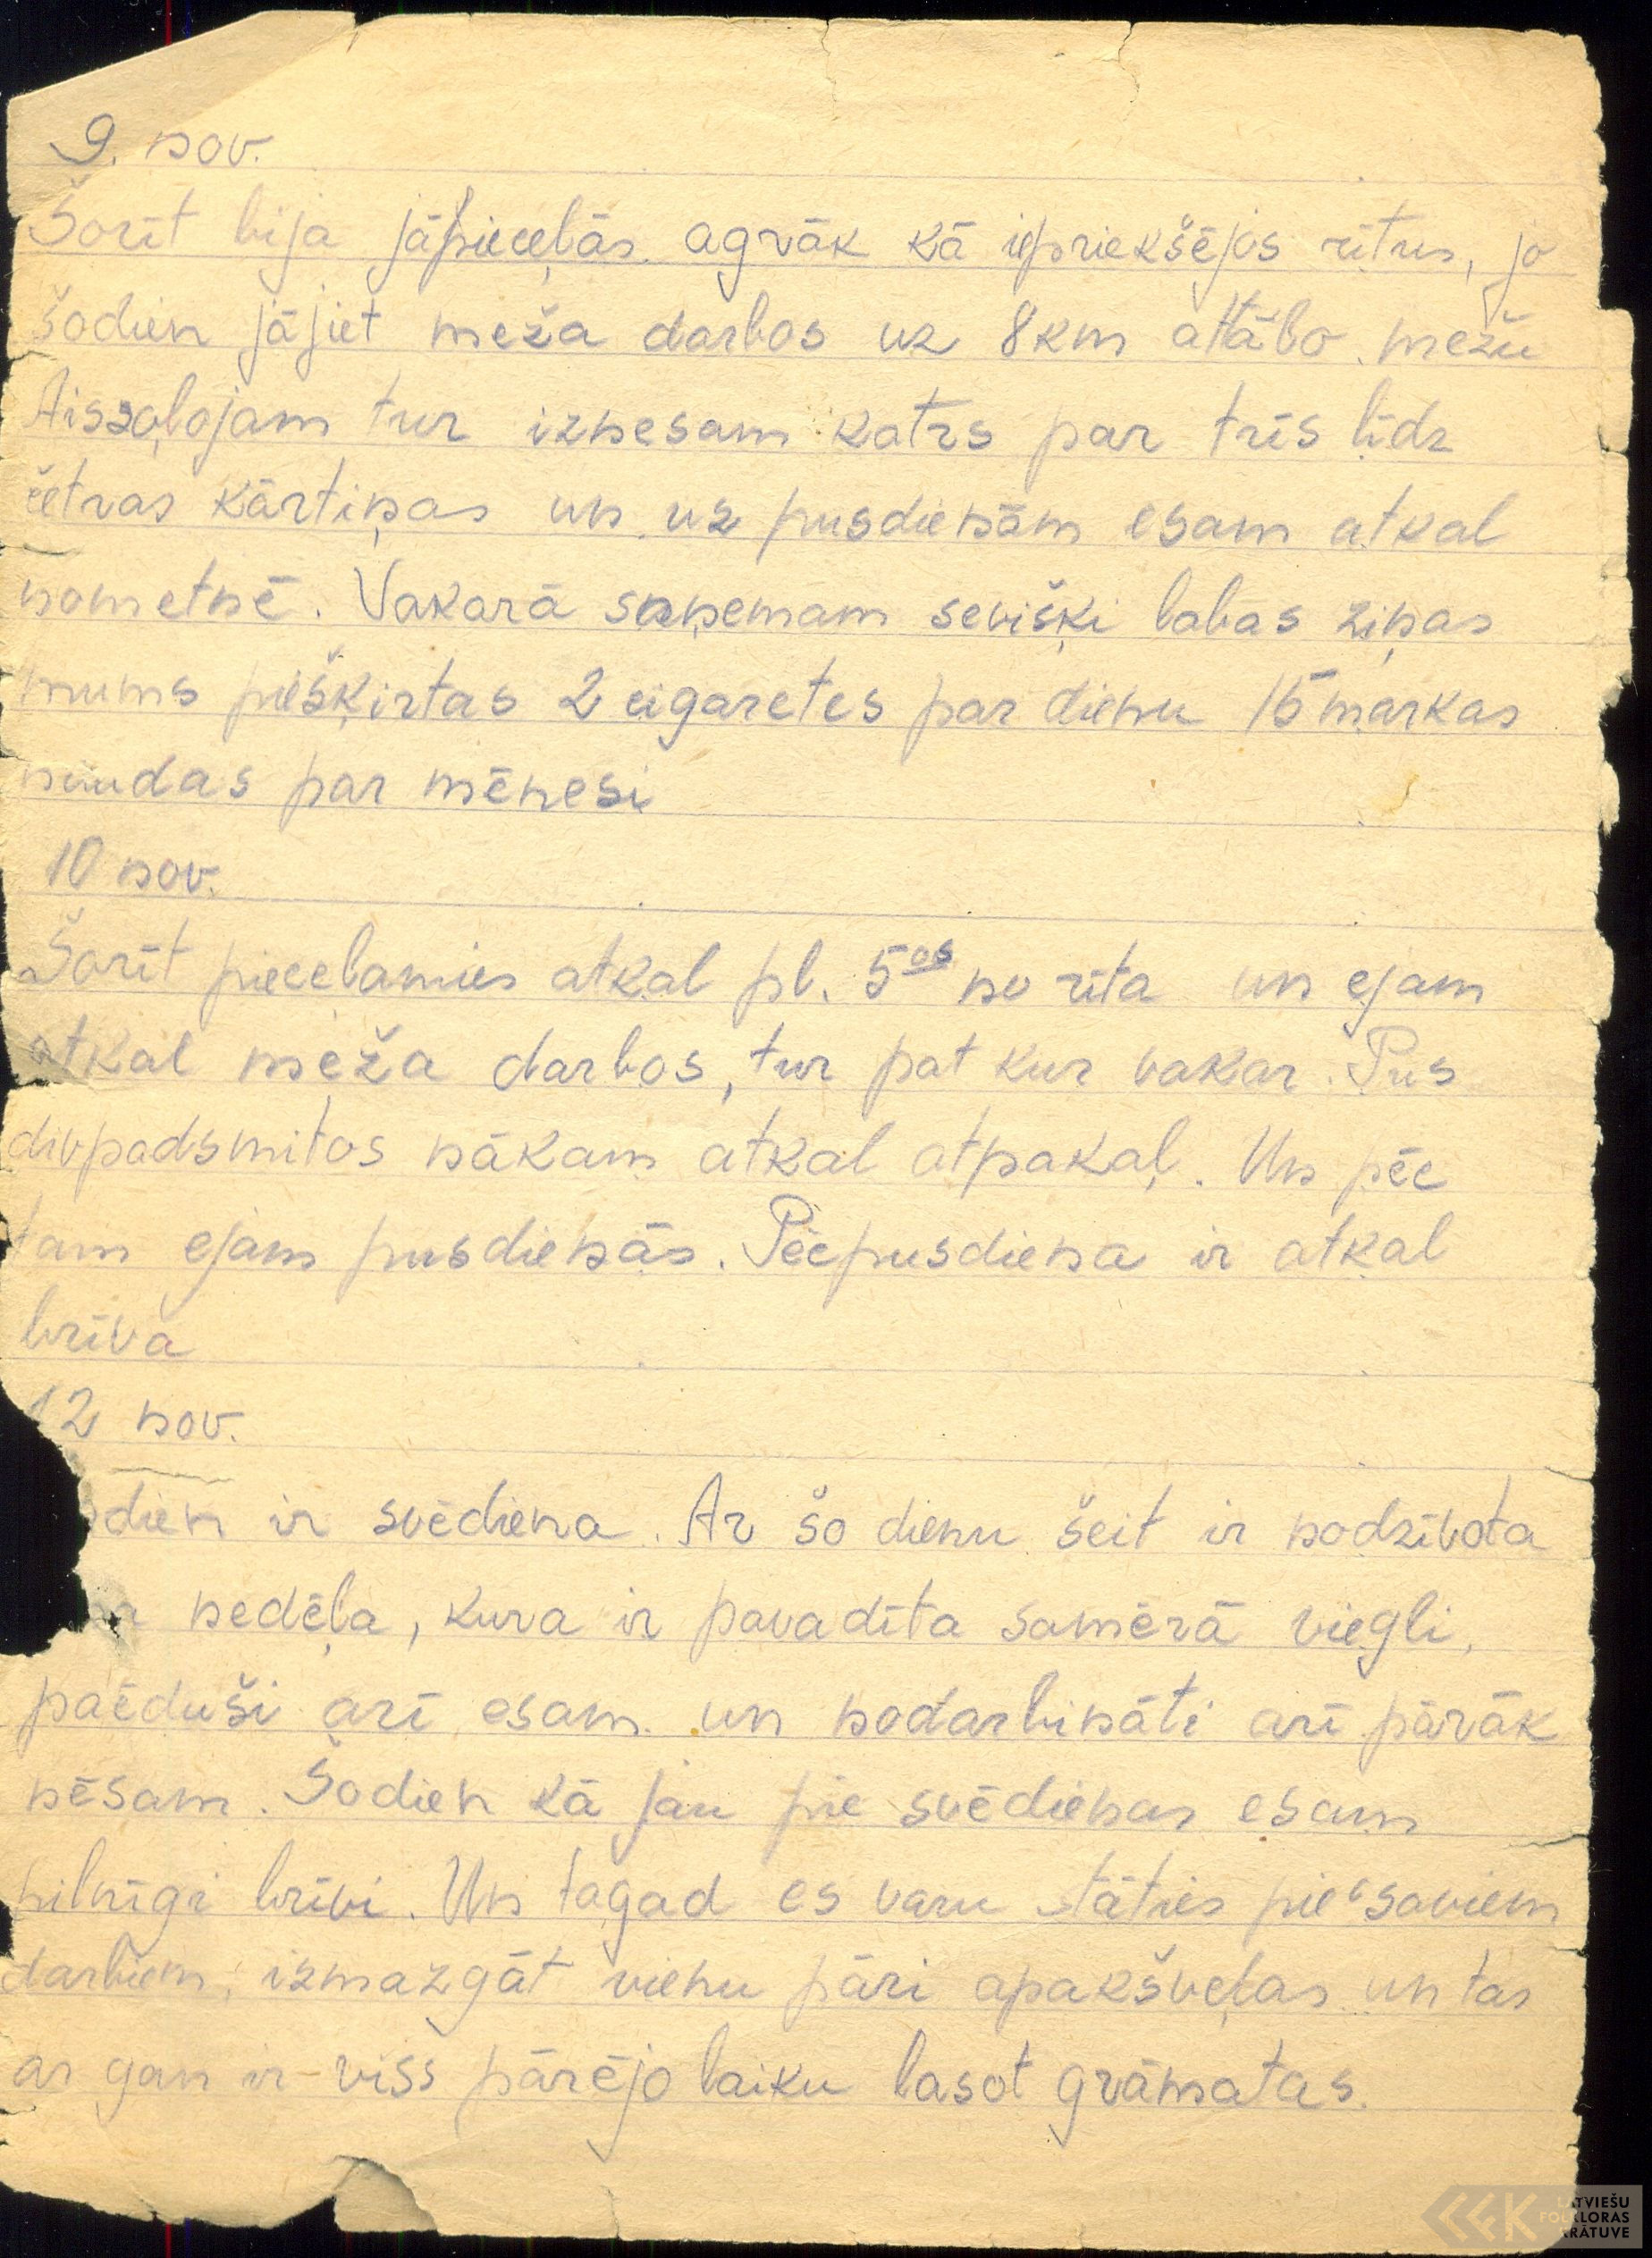 9. nov.
Šorīt bija jāpieceļās agrāk kā iepriekšējos rītus, jo
šodien jājiet meža darbos uz 8km attālo mežu
Aissoļojam tur iznesam katrs par trīs līdz
četras kārtiņas un uz pusdienām esam atkal
nometnē. Vakarā saņemam sevišķi labas ziņas
mums piešķirtas 2 cigaretes par dienu 15 markas
naudas par mēnesi
10 nov.
Šorīt pieceļamies atkal pl. 5os no rīta un ejam
atkal meža darbos, tur pat kur vakar. Pus
divpadsmitos nākam atkal atpakaļ. Un pēc
tam ejam pusdienās. Pēcpusdiena ir atkal
brīva
12 nov.
odien ir svēdiena. Ar šo dienu šeit ir nodzīvota
nedēļa, kura ir pavadīta samērā viegli,
paēduši arī esam un nodarbināti arī pārāk
nēsam. Šodien kā jau pie svēdienas esam
pilnīgi brīvi. Un tagad es varu stāties pie saviem
darbiem, izmazgāt vienu pāri apakšveļas un tas
ar gan ir viss pārējo laiku lasot grāmatas.
LATVIEŠU
FOLKLORAS
KRĀTUVE